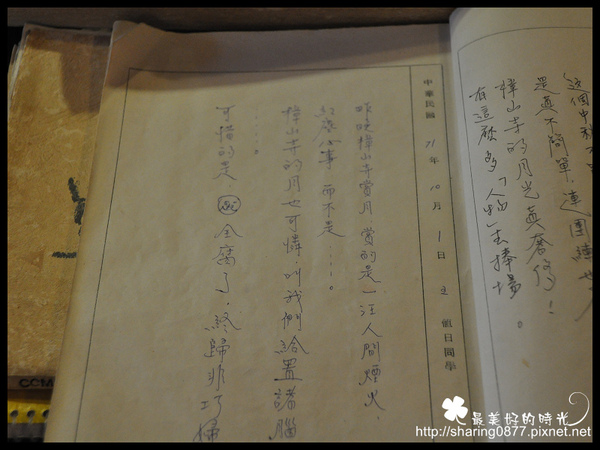 這個中秋
是真不簡單．連團
樟山寺的月光真奢侈！
有這麼多「人焰」去捧場。
中華民國 71年 10月 1日 值日同學
昨晚樟山寺賞月．賞的是一汪人間煙火．
紅塵心事 而不是……。
樟山寺的月也可憐．叫我們給置諸腦
……。
可惜的是．全腐了．終歸非
最美好的時光
http://sharing0877.pixnet.net